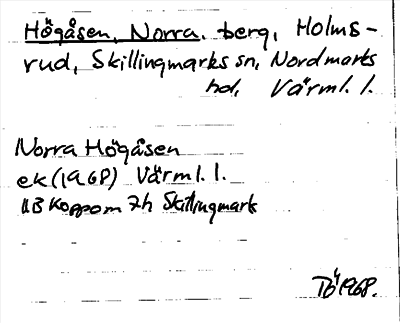 Högåsen, Norra, berg, Holms-
rud, Skillingmarks sn, Nordmarks
hd, Värml. l.
Norra Högåsen
ek (1968) Värml. l.
11B Koppom 7h Skillingmark
1968.